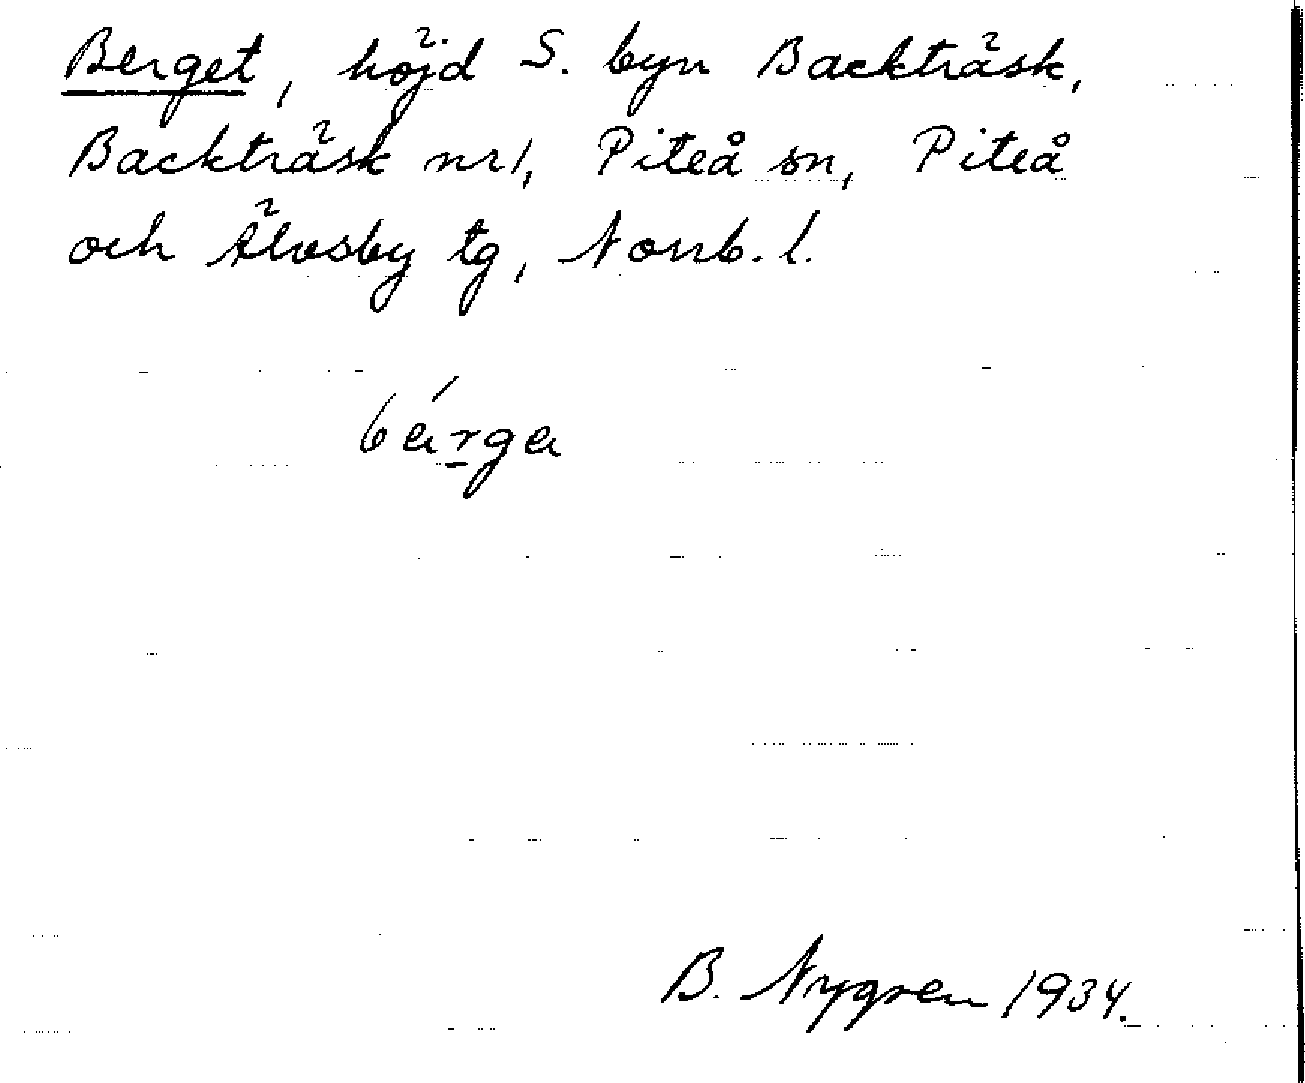 Berget, höjd S. byn Backträsk,
Backträsk nr 1, Piteå sn, Piteå
och Älvsby tg, Norrb. l.
bárga
B. Nygren 1934.